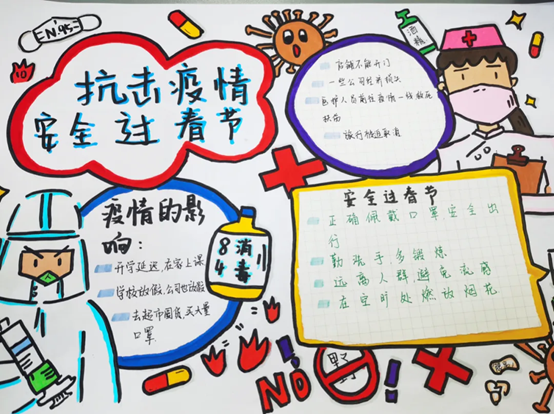 EN95
抗击疫情
安全过春节
酒精
店铺不能开门
一些公司经济损失
医护人员前往疫情一线救死
扶伤
旅行被迫取消
疫情的影
响:
开学延迟,在家上课
学校放假,公司也放假
去超市囤货,买大量
口罩
84消毒
安全过春节
正确佩戴口罩安全出
行
勤洗手多锻炼
远离人群,避免流感
在空旷处燃放烟花
NO!
野
!